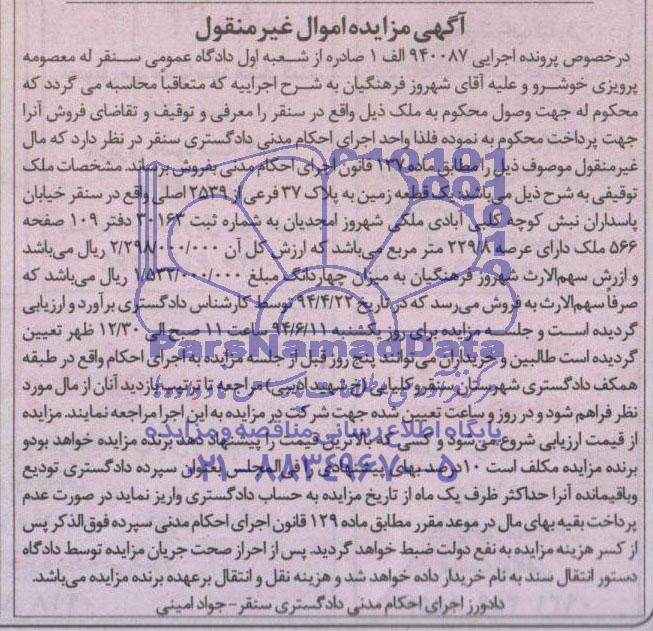 آگهی مزایده اموال غیر منقول
درخصوص پرونده اجرایی ۹۴۰۰۸۷ الف ۱ صادره از شعبه اول دادگاه عمومی سنقر له معصومه
پرویزی خوشرو و علیه آقای شهروز فرهنگیان به شرح اجراییه که متعاقباً محاسبه می گردد که
محکوم له جهت وصول محکوم به ملک ذیل واقع در سنقر را معرفی و توقیف و تقاضای فروش آنرا
جهت پرداخت محکوم به نموده فلذا واحد اجرای احکام مدنی دادگستری سنقر در نظر دارد که مال
غیرمنقول موصوف ذیل را مطابق ماده ۱۳۷ قانون اجرای احکام مدنی بفروش برساند. مشخصات ملک
توقیفی به شرح ذیل می‌باشد: یک قطعه زمین به پلاک ۳۷ فرعی از ۲۵۳۹ اصلی واقع در سنقر خیابان
پاسداران نبش کوچه کلبی آبادی ملکی شهروز امجدیان به شماره ثبت ۳۰۱۶۳ دفتر ۱۰۹ صفحه
۵۶۶ ملک دارای عرصه ۲۲۹/۸ متر مربع می‌باشد که ارزش کل آن ۲/۲۹۸/۰۰۰/۰۰۰ ریال می‌باشد
و ازرش سهم‌الارث شهروز فرهنگیان به میزان چهاردانگ مبلغ ۱/۵۳۲/۰۰۰/۰۰۰ ریال می‌باشد که
صرفاً سهم‌الارث به فروش می‌رسد که در تاریخ ۹۴/۴/۲۲ توسط کارشناس دادگستری برآورد و ارزیابی
گردیده است و جلسه مزایده برای روز یکشنبه ۹۴/۶/۱۱ ساعت ۱۱ صبح الی ۱۲/۳۰ ظهر تعیین
گردیده است طالبین و خریداران می‌توانند پنج روز قبل از جلسه مزایده به اجرای احکام واقع در طبقه
همکف دادگستری شهرستان سنقر و کلیایی (خ شهید ادیبی) مراجعه تا ترتیب بازدید آنان از مال مورد
نظر فراهم شود و در روز و ساعت تعیین شده جهت شرکت در مزایده به این اجرا مراجعه نمایند. مزایده
از قیمت ارزیابی شروع می‌شود و کسی که بالاترین قیمت را پیشنهاد دهد برنده مزایده خواهد بود و
برنده مزایده مکلف است ۱۰ درصد بهای پیشنهادی را فی‌المجلس بعنوان سپرده دادگستری تودیع
وباقیمانده آنرا حداکثر ظرف یک ماه از تاریخ مزایده به حساب دادگستری واریز نماید در صورت عدم
پرداخت بقیه بهای مال در موعد مقرر مطابق ماده ۱۲۹ قانون اجرای احکام مدنی سپرده فوق‌الذکر پس
از کسر هزینه مزایده به نفع دولت ضبط خواهد گردید. پس از احراز صحت جریان مزایده توسط دادگاه
دستور انتقال سند به نام خریدار داده خواهد شد و هزینه نقل و انتقال برعهده برنده مزایده می‌باشد.
دادورز اجرای احکام مدنی دادگستری سنقر - جواد امینی
ParsNamadData
پایگاه اطلاع رسانی مناقصه و مزایده
۰۲۱-۸۸۳۴۹۶۷۰-۵